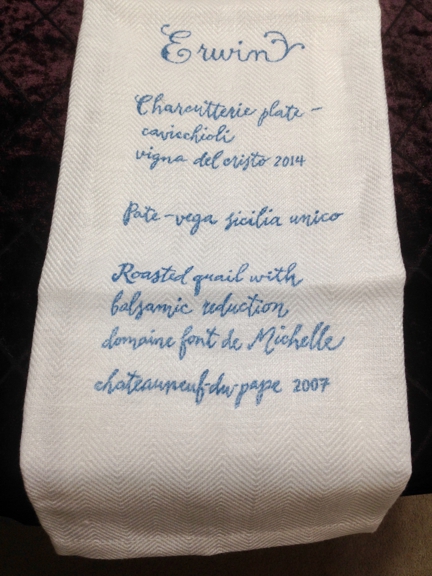 Erwin
Charcutterie plate -
cavicchioli
vigna del cristo 2014
Pate - vega sicilia unico
Roasted quail with
balsamic reduction
domaine font de Michelle
chateauneuf-du-pape 2007